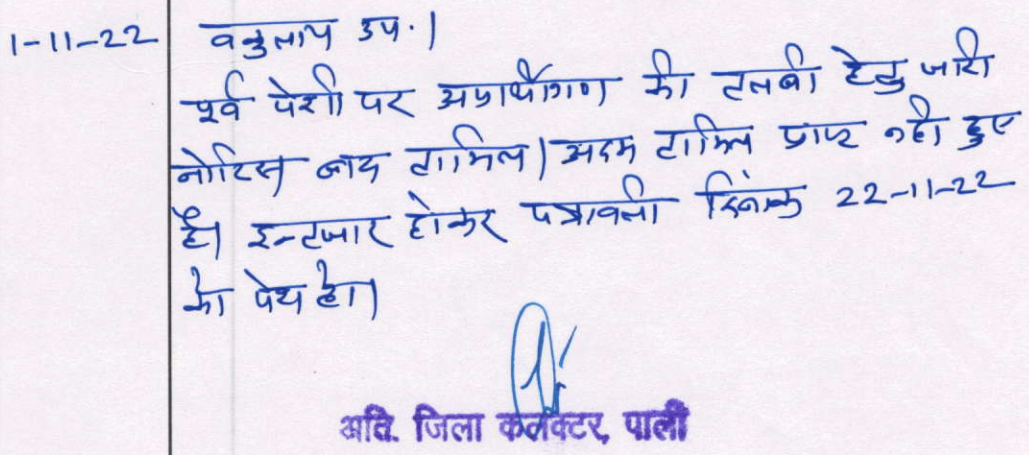 1-11-22 वकुलाय उप.।
पूर्व पेशी पर अप्रार्थीगण की तलबी हेतु जारी
नोटिस बाद तामिल/अदम तामिल प्राप्त नही हुए
है। इन्तजार होकर पत्रावली दिनांक 22-11-22
को पेश हो।
अति. जिला कलक्टर, पाली